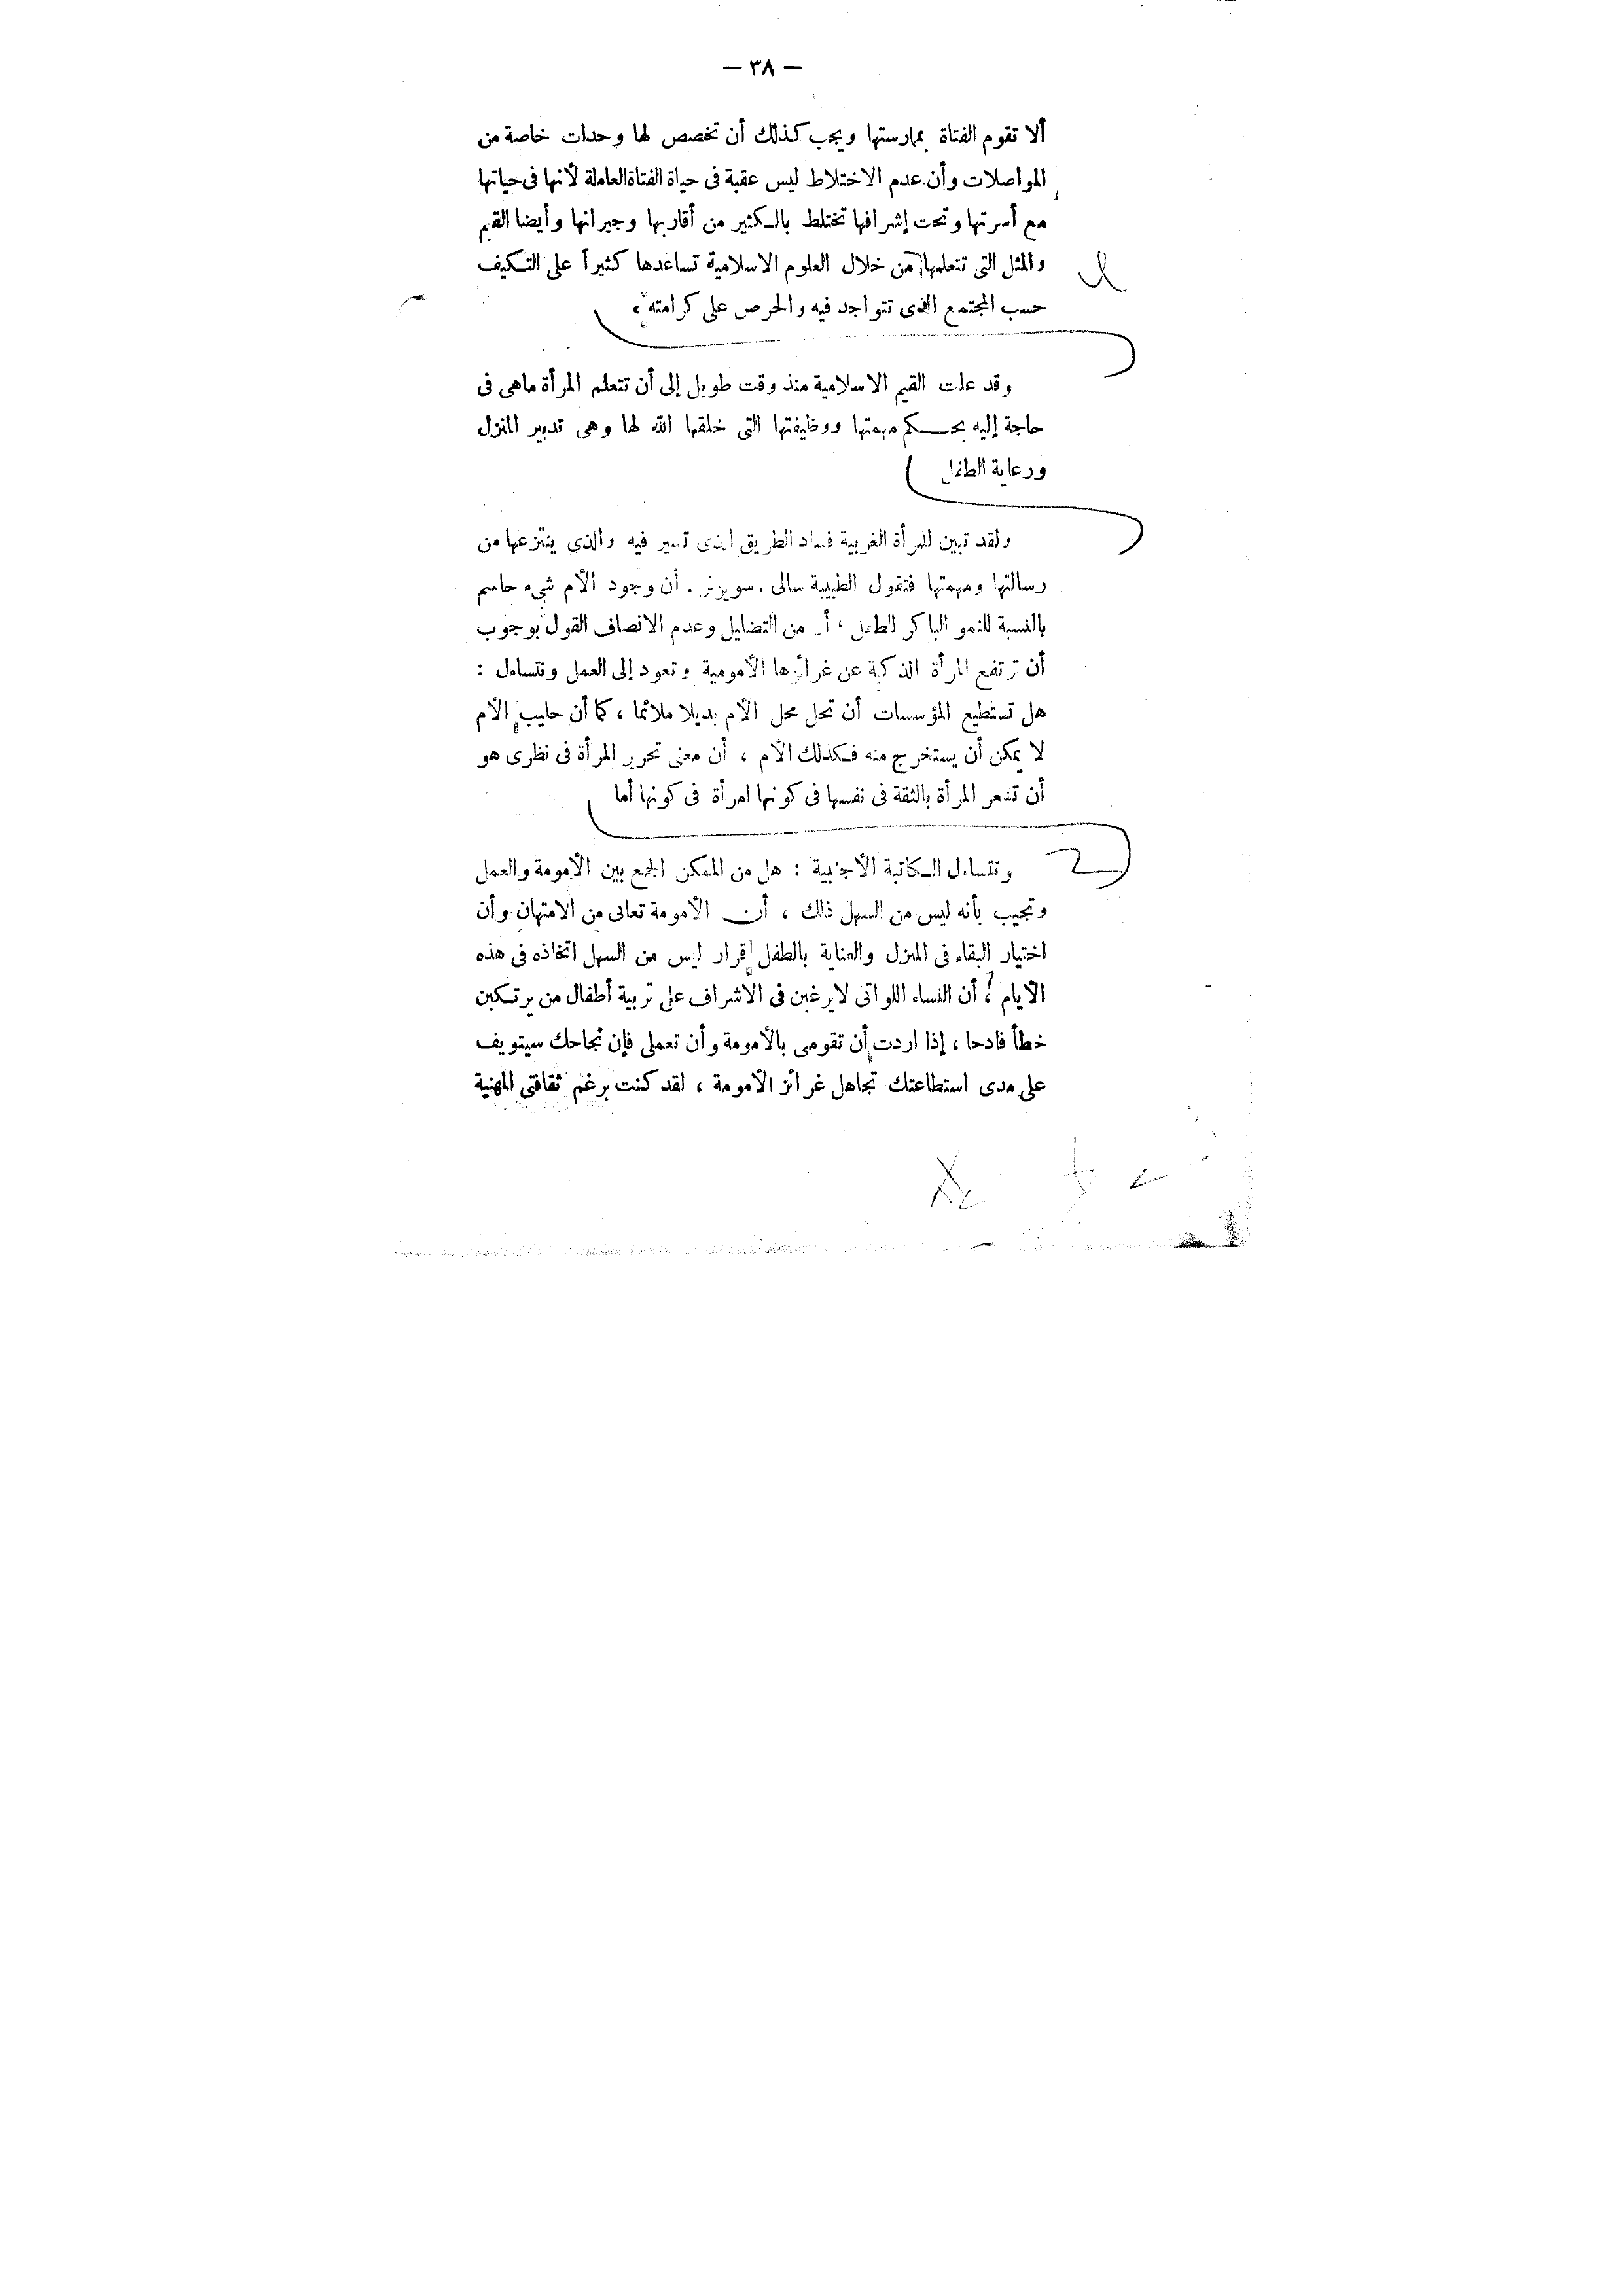 — ٣٨ —
ألا تقوم الفتاة بممارستها ويجب كذلك أن تخصص لها وحدات خاصة من
المواصلات وأن عدم الاختلاط ليس عقبة فى حياة الفتاة العاملة لأنها فى حياتها
مع أسرتها وتحت إشرافها تختلط بالكثير من أقاربها وجيرانها وأيضا القيم
والمثل التى تتعلمها من خلال العلوم الاسلامية تساعدها كثيراً على التكيف
حسب المجتمع الذى تتواجد فيه والحرص على كرامته .
وقد علت القيم الاسلامية منذ وقت طويل إلى أن تتعلم المرأة ماهى فى
حاجة إليه بحكم مهمتها ووظيفتها التى خلقها الله لها وهى تدبير المنزل
ورعاية الطفل
ولقد تبين للمرأة الغربية فساد الطريق الذى تسير فيه والذى ينتزعها من
رسالتها ومهمتها فتقول الطبيبة سالى . أن وجود الأم شىء حاسم
بالنسبة للنمو الباكر للطفل ، من التضليل وعدم الانصاف القول بوجوب
أن ترتفع المرأة الذكية عن غرائزها الأمومية وتعود إلى العمل ونتساءل :
هل تستطيع المؤسسات أن تحل محل الأم بديلا ملائما ، كما أن حليب الأم
لا يمكن أن يستخرج منه فكذلك الأم ، أن معنى تحرير المرأة فى نظرى هو
أن تشعر المرأة بالثقة فى نفسها فى كونها امرأة فى كونها أما
وتتساءل الكاتبة الأجنبية : هل من الممكن الجمع بين الأمومة والعمل
وتجيب بأنه ليس من السهل ذلك ، أن الأمومة تعانى من الامتهان وأن
اختيار البقاء فى المنزل والعناية بالطفل قرار ليس من السهل اتخاذه فى هذه
الأيام ، أن النساء اللواتى لايرغبن فى الاشراف على تربية أطفال من يرتكبن
خطأ فادحا ، إذا اردت أن تقومى بالأمومة وأن تعملى فإن نجاحك سيتويف
على مدى استطاعتك تجاهل غرائز الأمومة ، لقد كنت برغم ثقافتى المهنية